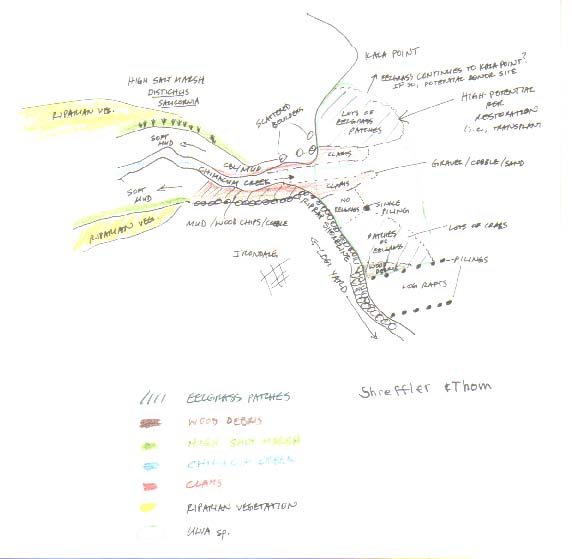 KALA POINT
EELGRASS CONTINUES TO KALA POINT?
IF SO, POTENTIAL DONOR SITE
HIGH SALT MARSH
DISTICHLIS
SALICORNIA
RIPARIAN VEG.
SCATTERED
BOULDERS
LOTS OF
EELGRASS
PATCHES
HIGH POTENTIAL
FOR
RESTORATION
(i.e., TRANSPLANT)
SOFT
MUD
CLAMS
COB/MUD
CHIMACUM CREEK
GRAVEL/COBBLE/SAND
CLAMS
SOFT
MUD
NO
EELGRASS
SINGLE
PILING
RIPARIAN VEG.
MUD/WOOD CHIPS/COBBLE
RIPRAP SHORELINE
LOTS OF CRABS
PATCHES
OF
EELGRASS
IRONDALE
LOG YARD
WOOD
DEBRIS
PILINGS
LOG RAFTS
EELGRASS PATCHES
Shreffler & Thom
WOOD DEBRIS
HIGH SALT MARSH
CHIMACUM CREEK
CLAMS
RIPARIAN VEGETATION
ULVA sp.